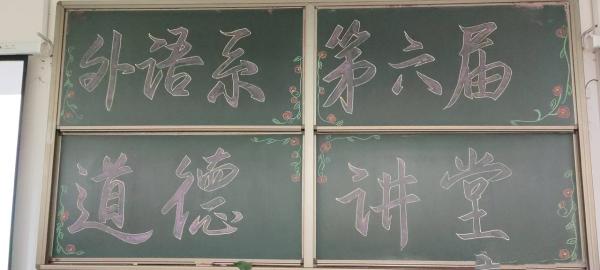 外语系第六届
道德讲堂